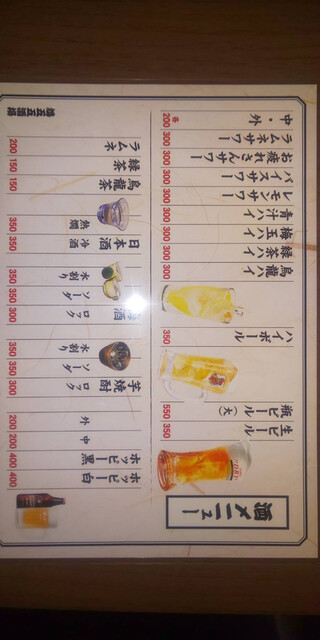 酒メニュー
生ビール 350
瓶ビール(大) 550
ハイボール 350
烏龍ハイ 300
緑茶ハイ 300
梅玉ハイ 300
青汁ハイ 300
レモンサワー 300
バイスサワー 300
お疲れさんサワー 300
ラムネサワー 300
中・外 各200
ホッピー白 400
ホッピー黒 400
中 200
外 200
芋焼酎 ロック 300
ソーダ 350
水割り 350
酒 ロック 300
ソーダ 350
水割り 350
日本酒 冷酒 350
熱燗 350
烏龍茶 150
緑茶 150
ラムネ 200